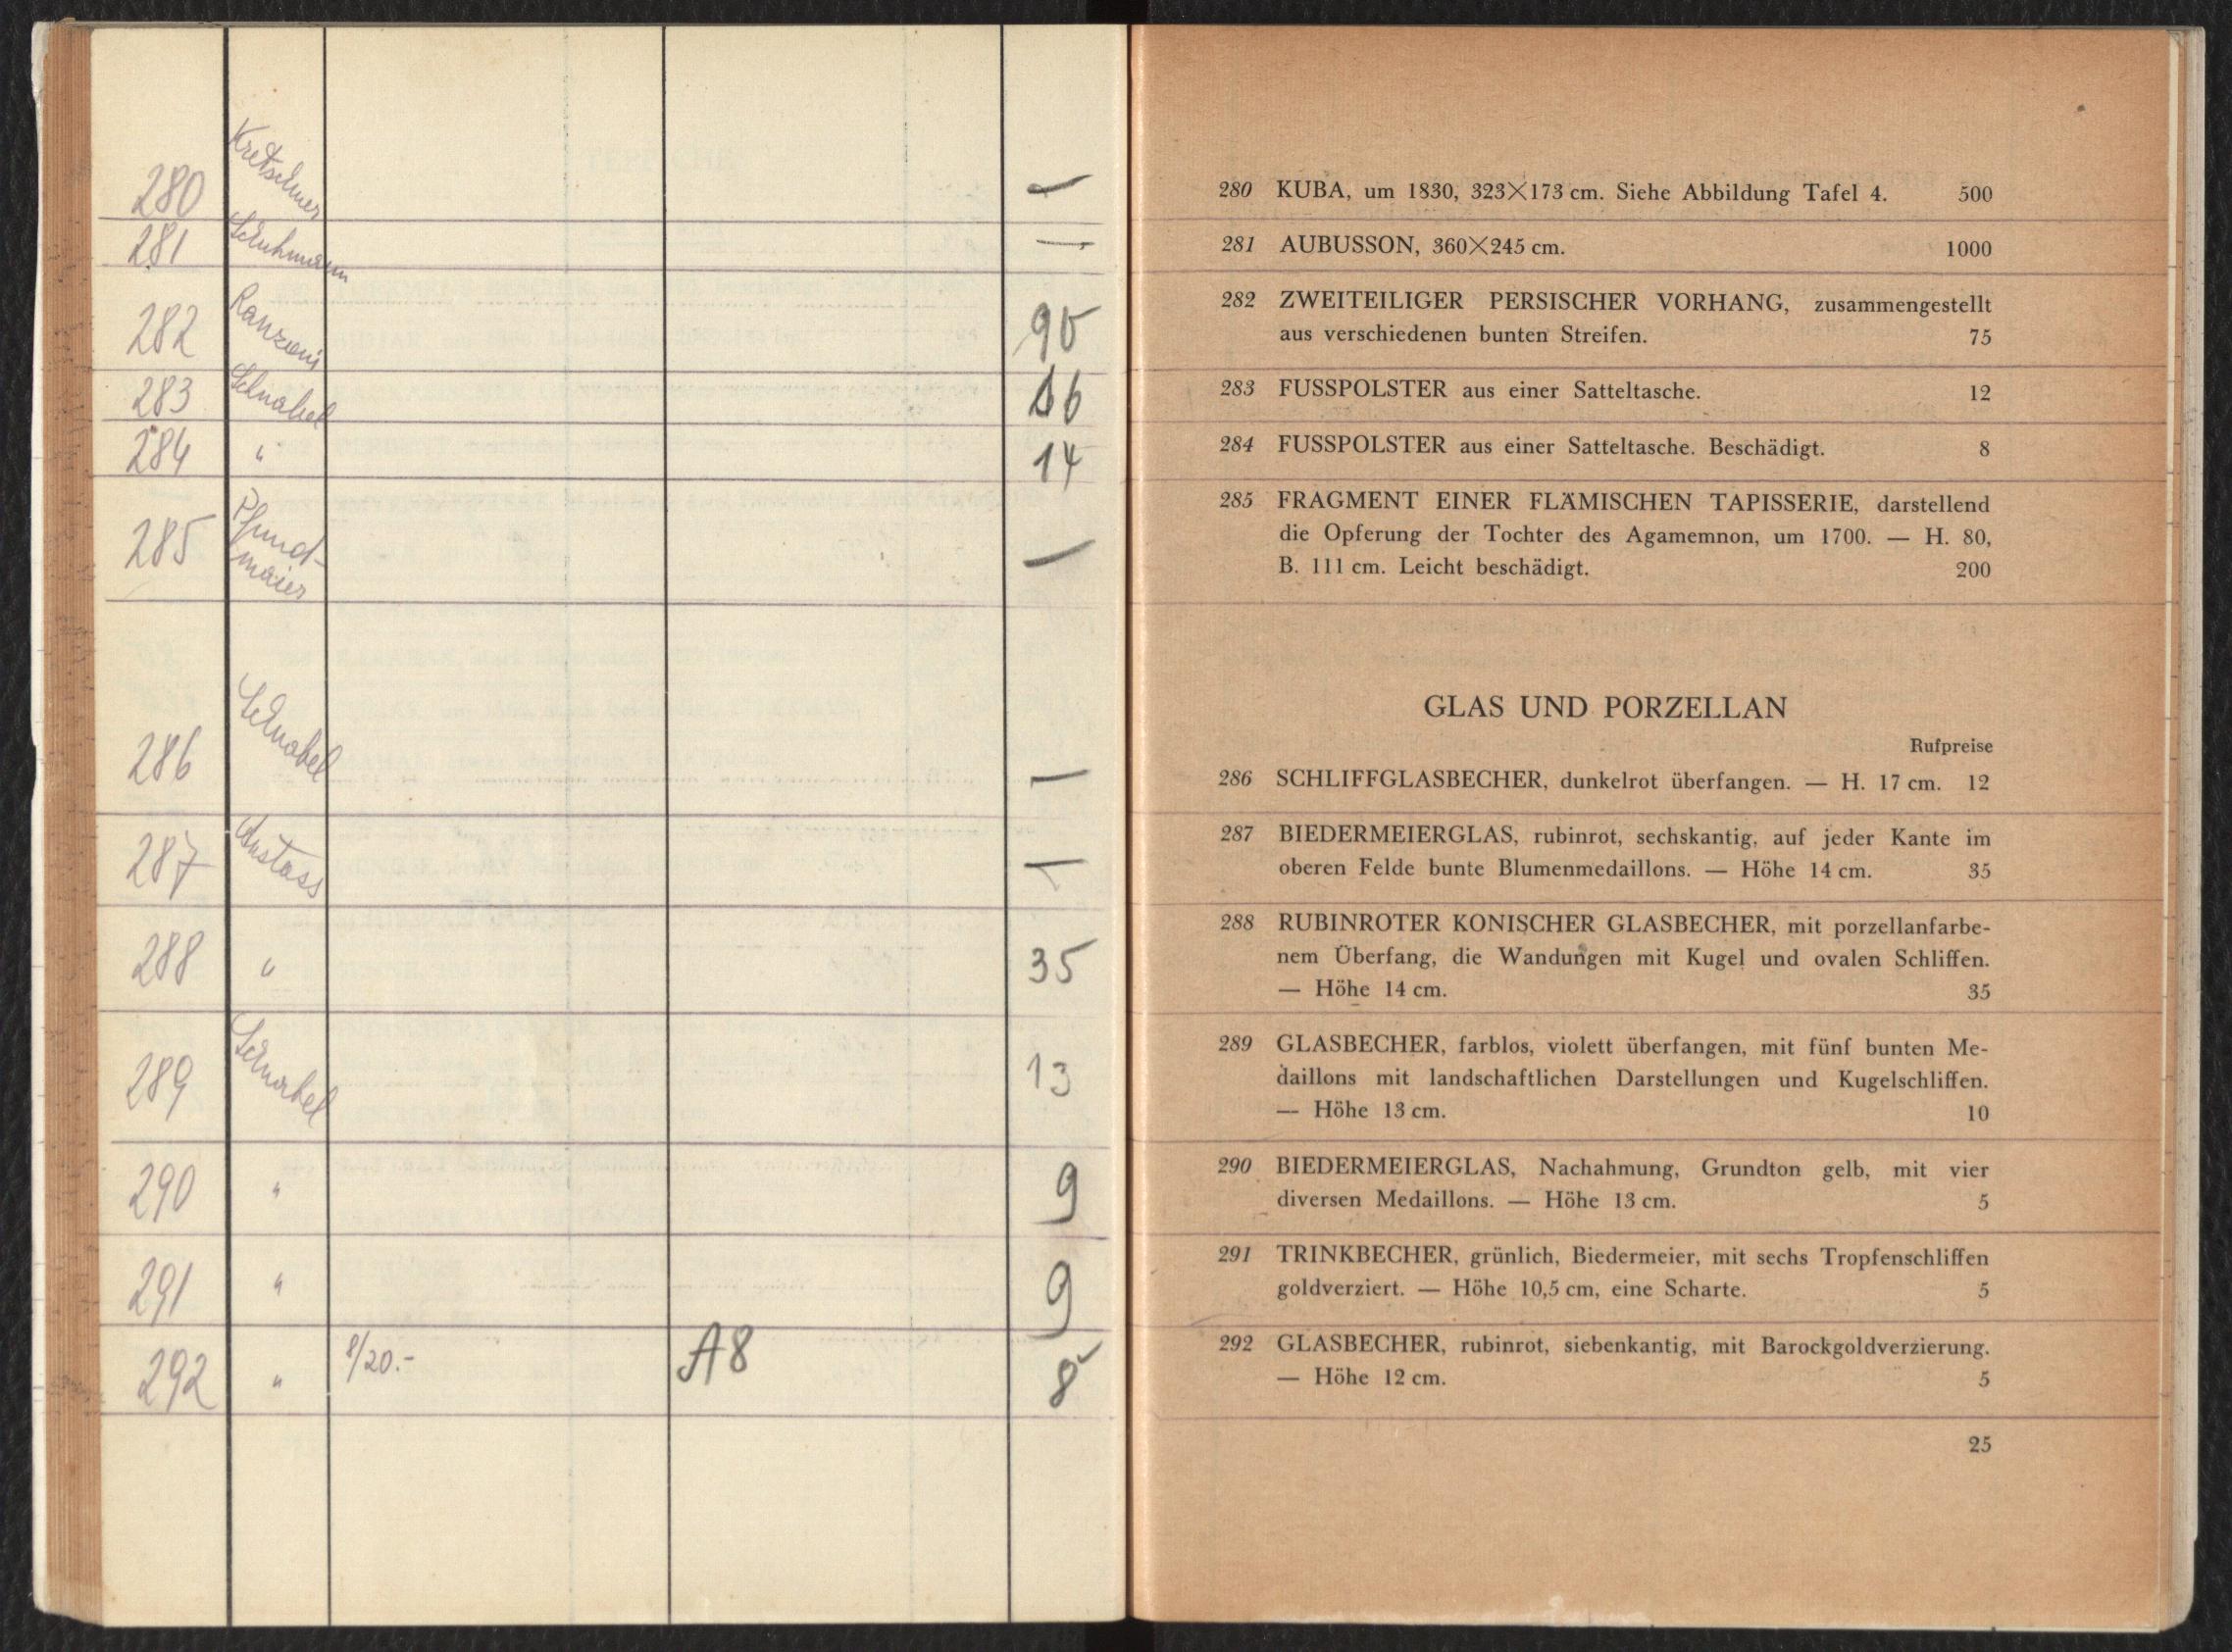 280 Kretschmer —
281 Schuhmann —
282 Ranzoni 90
283 Schnabel 16
284 " 14
285 Pfund-
maier —
286 Schnabel —
287 Anstoss —
288 " 35
289 Schnabel 13
290 " 9
291 " 9
292 " 8/20.- A8 8
280 KUBA, um 1830, 323×173 cm. Siehe Abbildung Tafel 4. 500
281 AUBUSSON, 360×245 cm. 1000
282 ZWEITEILIGER PERSISCHER VORHANG, zusammengestellt
aus verschiedenen bunten Streifen. 75
283 FUSSPOLSTER aus einer Satteltasche. 12
284 FUSSPOLSTER aus einer Satteltasche. Beschädigt. 8
285 FRAGMENT EINER FLÄMISCHEN TAPISSERIE, darstellend
die Opferung der Tochter des Agamemnon, um 1700. — H. 80,
B. 111 cm. Leicht beschädigt. 200
GLAS UND PORZELLAN
Rufpreise
286 SCHLIFFGLASBECHER, dunkelrot überfangen. — H. 17 cm. 12
287 BIEDERMEIERGLAS, rubinrot, sechskantig, auf jeder Kante im
oberen Felde bunte Blumenmedaillons. — Höhe 14 cm. 35
288 RUBINROTER KONISCHER GLASBECHER, mit porzellanfarbe-
nem Überfang, die Wandungen mit Kugel und ovalen Schliffen.
— Höhe 14 cm. 35
289 GLASBECHER, farblos, violett überfangen, mit fünf bunten Me-
daillons mit landschaftlichen Darstellungen und Kugelschliffen.
— Höhe 13 cm. 10
290 BIEDERMEIERGLAS, Nachahmung, Grundton gelb, mit vier
diversen Medaillons. — Höhe 13 cm. 5
291 TRINKBECHER, grünlich, Biedermeier, mit sechs Tropfenschliffen
goldverziert. — Höhe 10,5 cm, eine Scharte. 5
292 GLASBECHER, rubinrot, siebenkantig, mit Barockgoldverzierung.
— Höhe 12 cm. 5
25